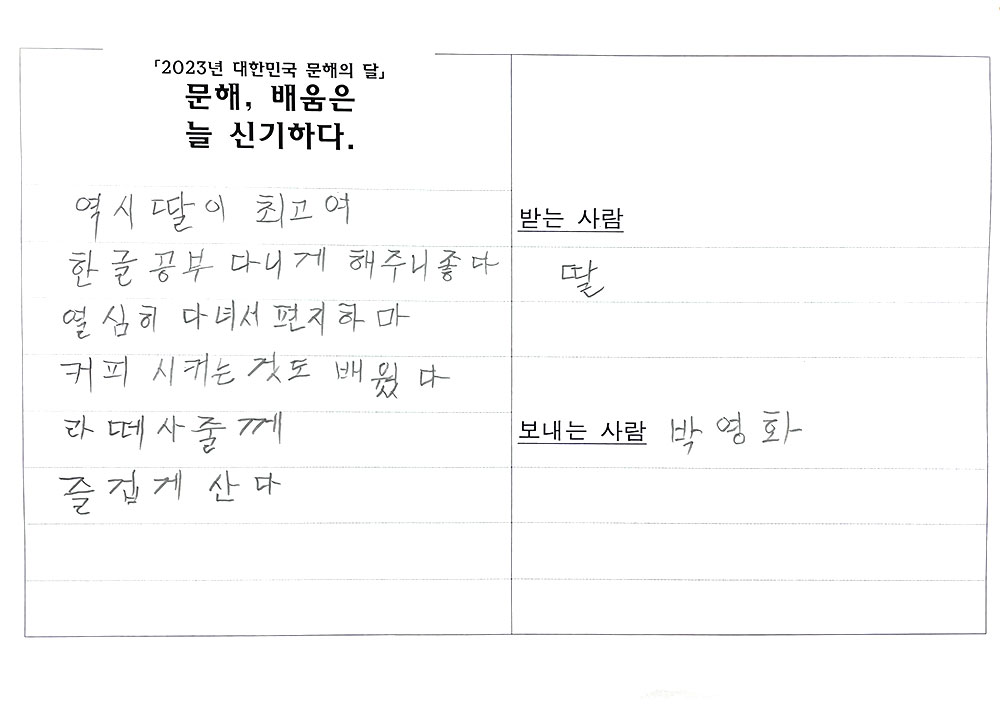 「2023년 대한민국 문해의 달」
문해, 배움은
늘 신기하다.
역시 딸이 최고여
한글공부 다니게 해주니좋다
열심히 다녀서 편지하마
커피 시키는 것도 배웠다
라떼사줄께
즐겁게 산다
받는 사람
딸
보내는 사람 박영화